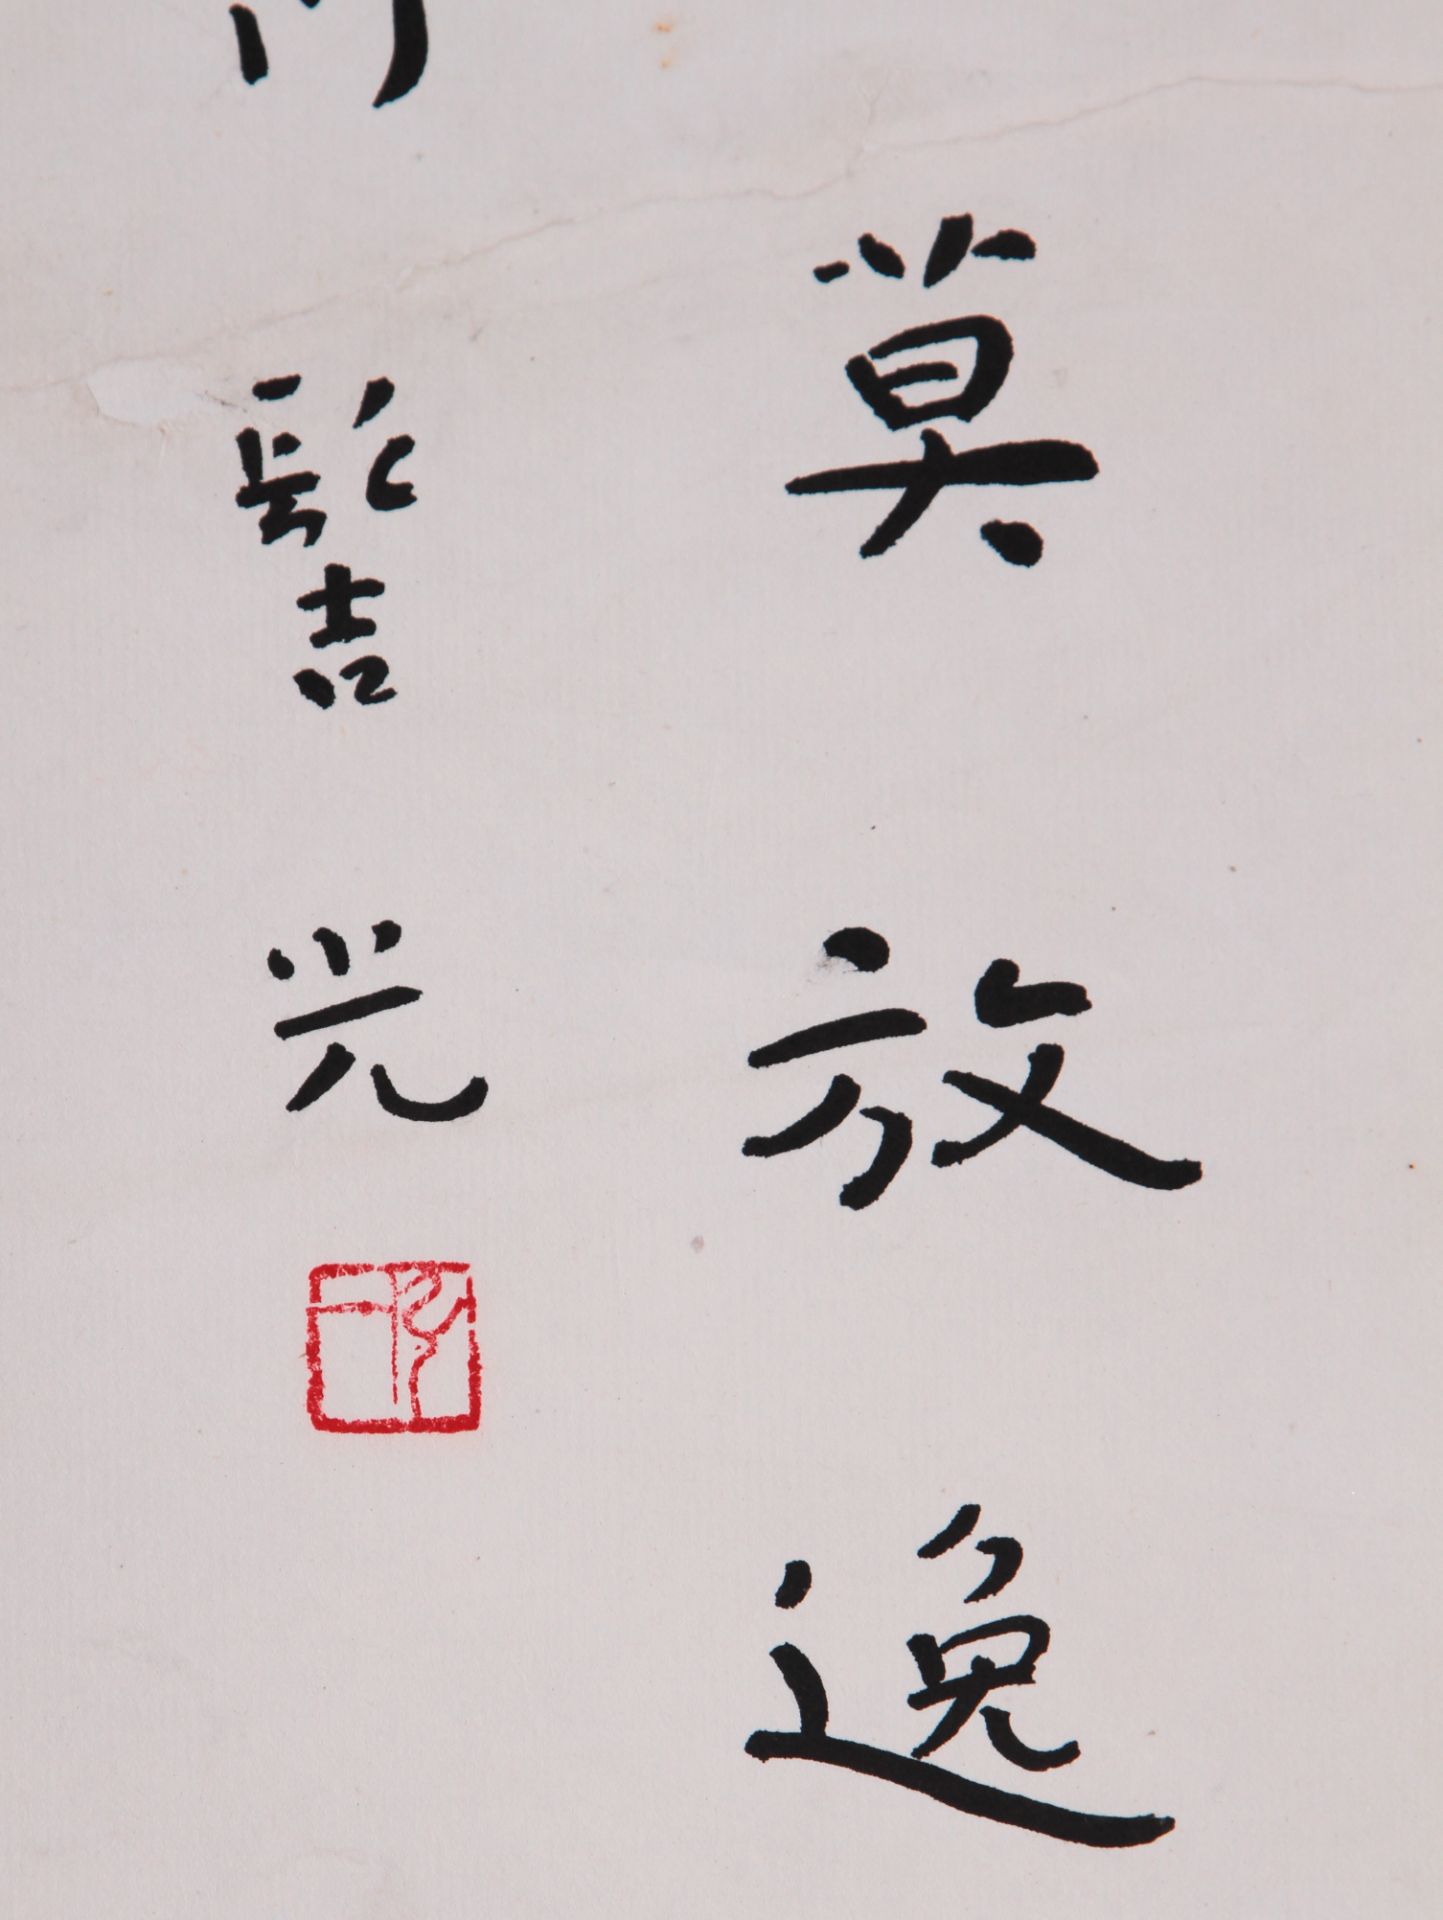 莫放逸
髻光